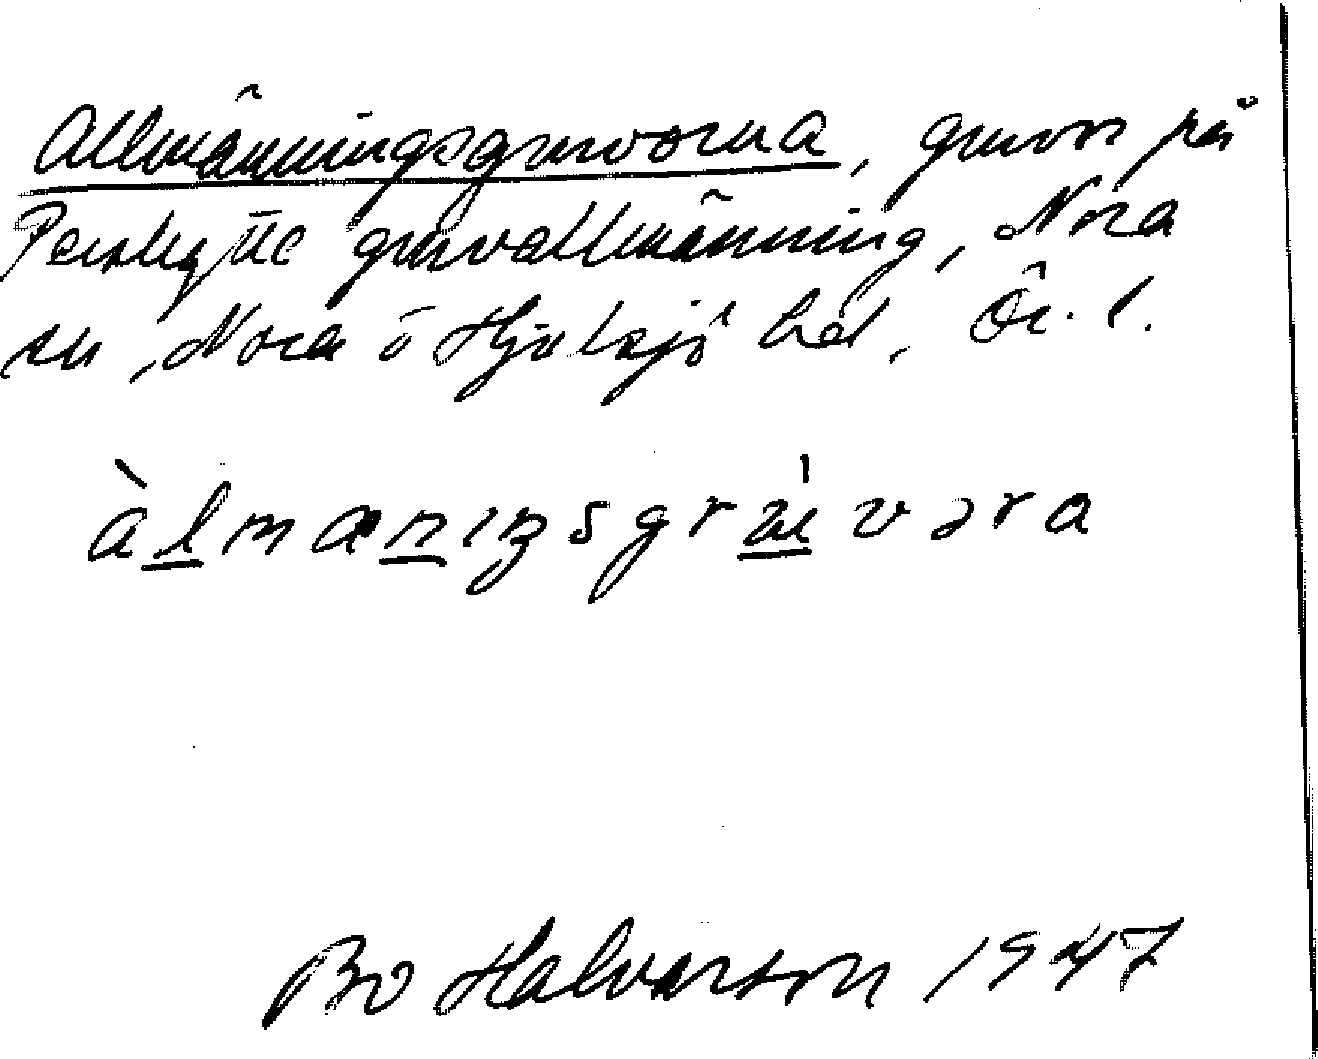 Allmänningsgruvorna, gruvor på
Pershytte gruvallmänning, Nora
sn, Nora o Hjulsjö bsl, Ör. l.
àlmænɪŋsgrʉ̀vəra
Bo Halvarson 1947